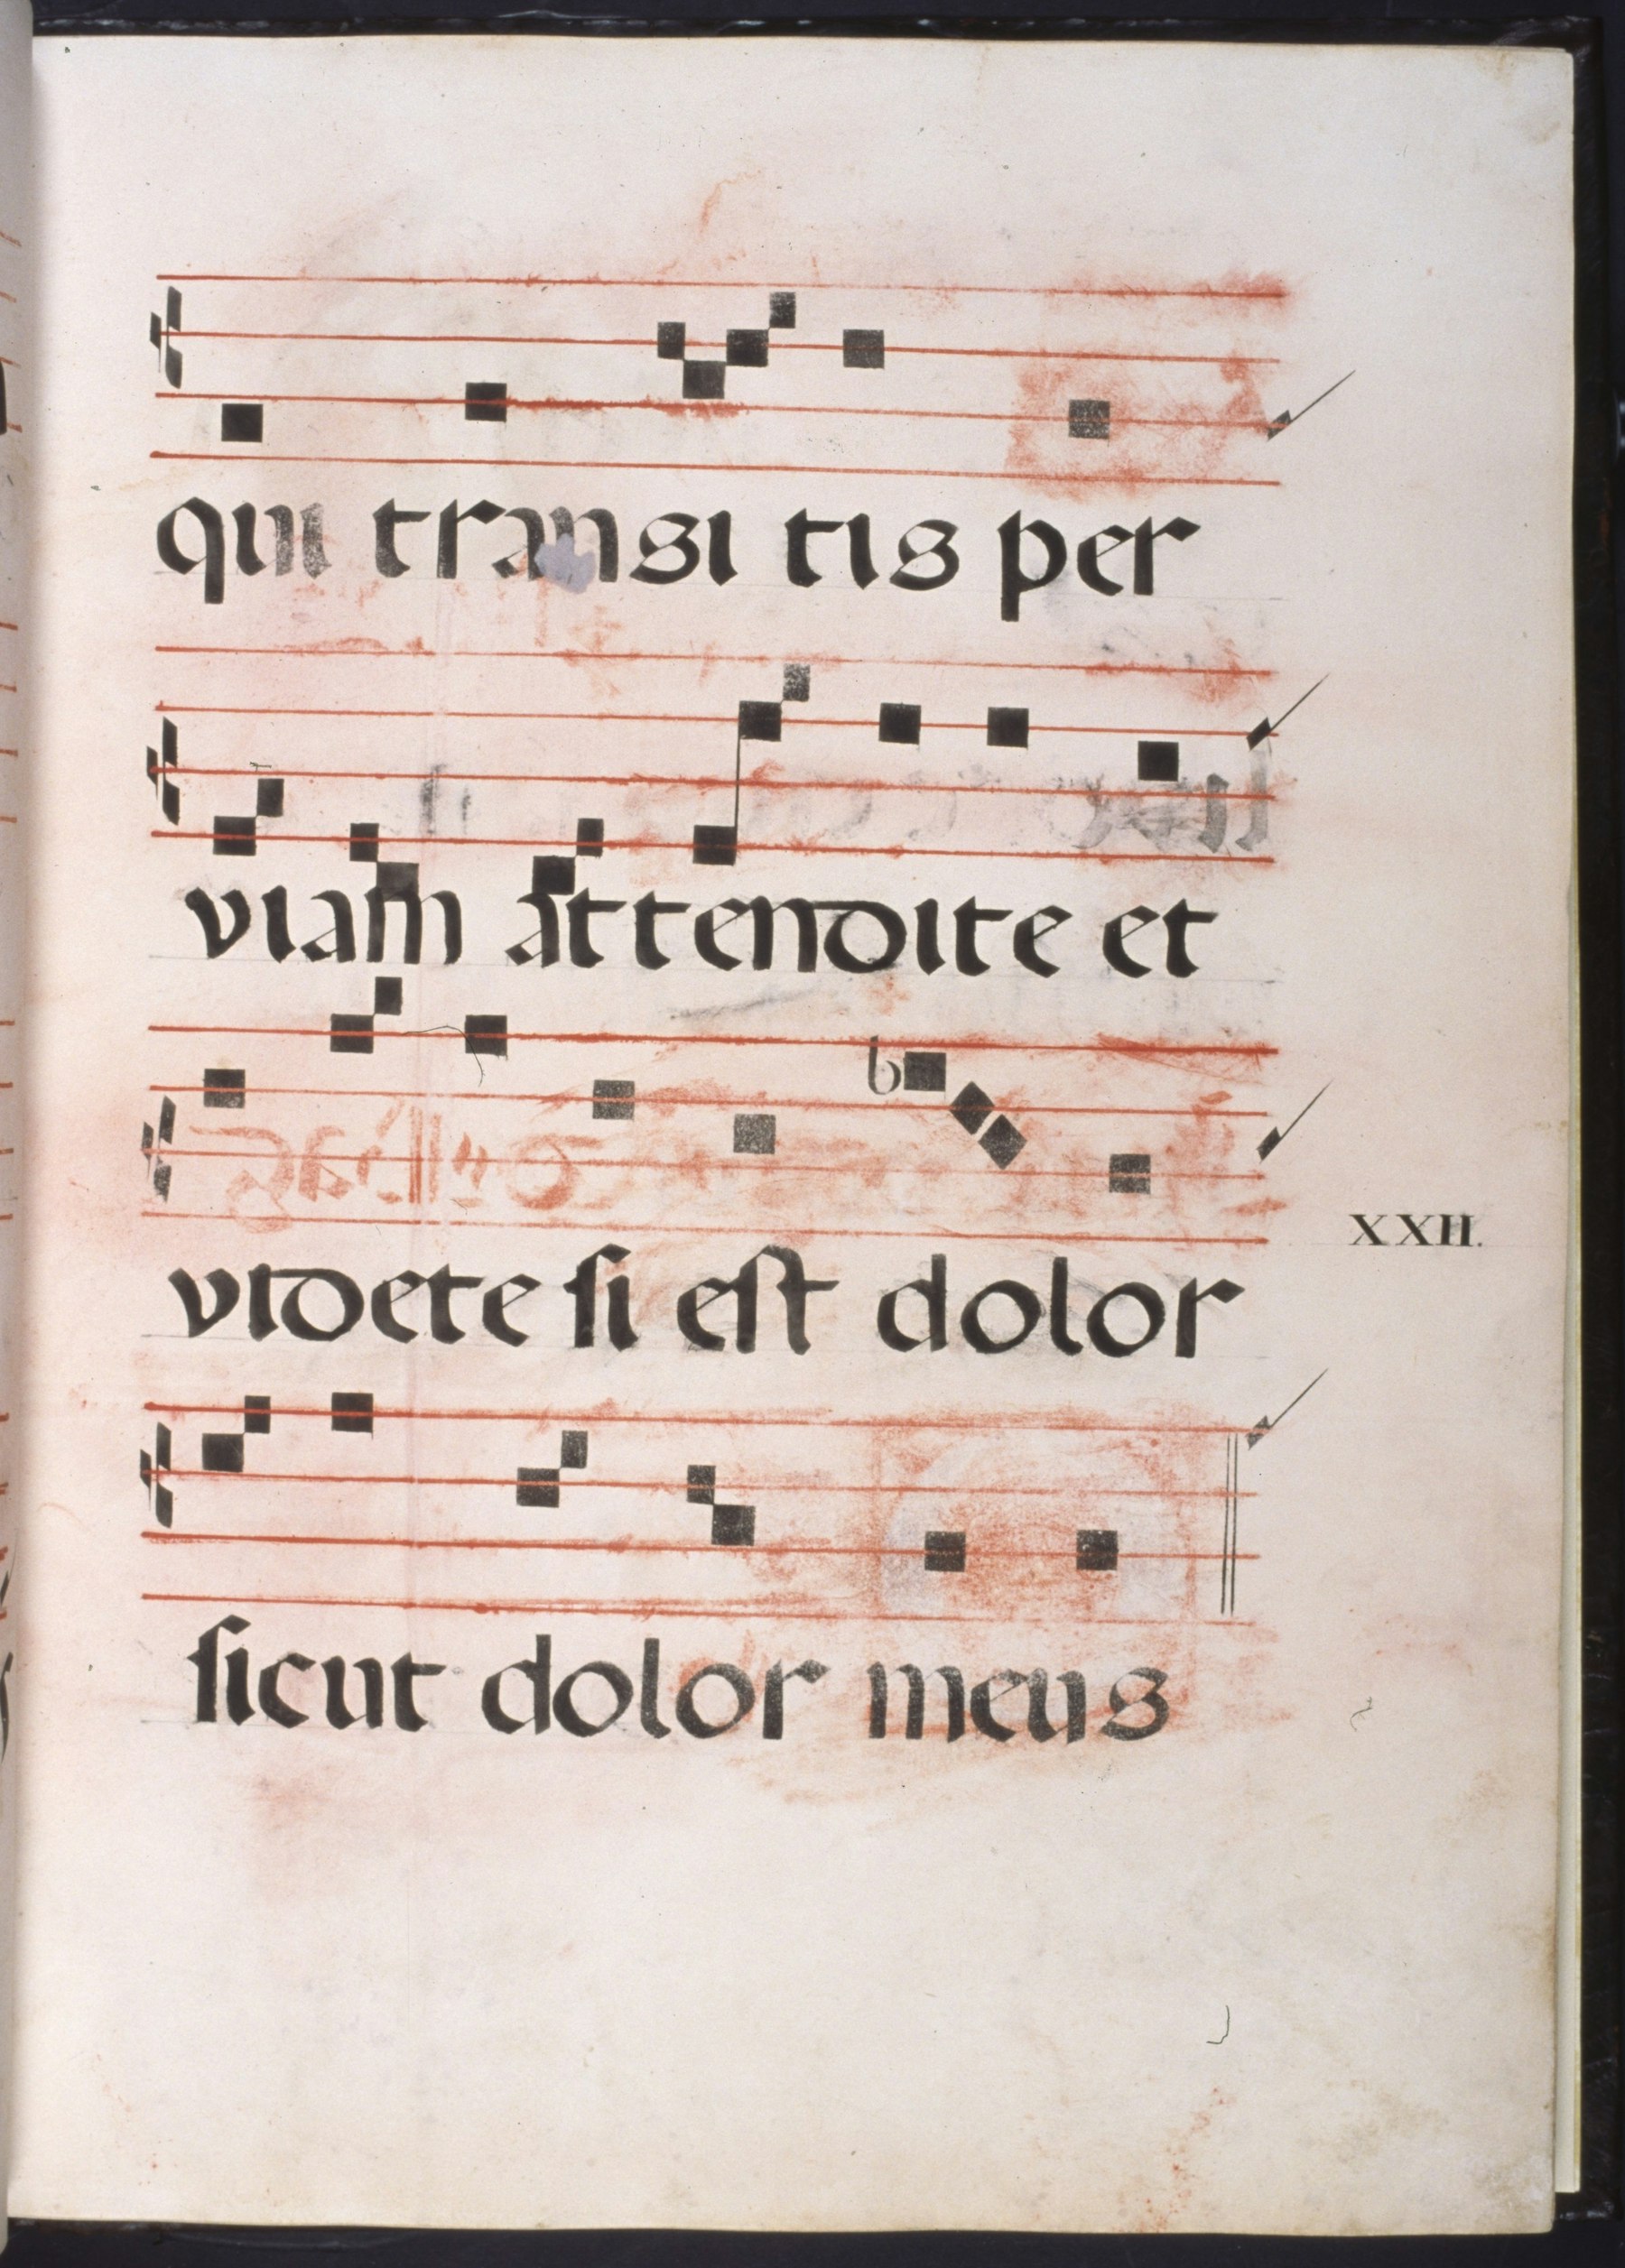 qui transi tis per
viam at tendite et
b
videte ſi eſt dolor
XXII.
ſicut dolor meus